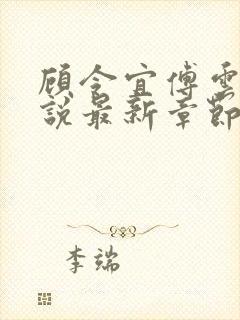 顾令宜傅雲
說最新章節
李端